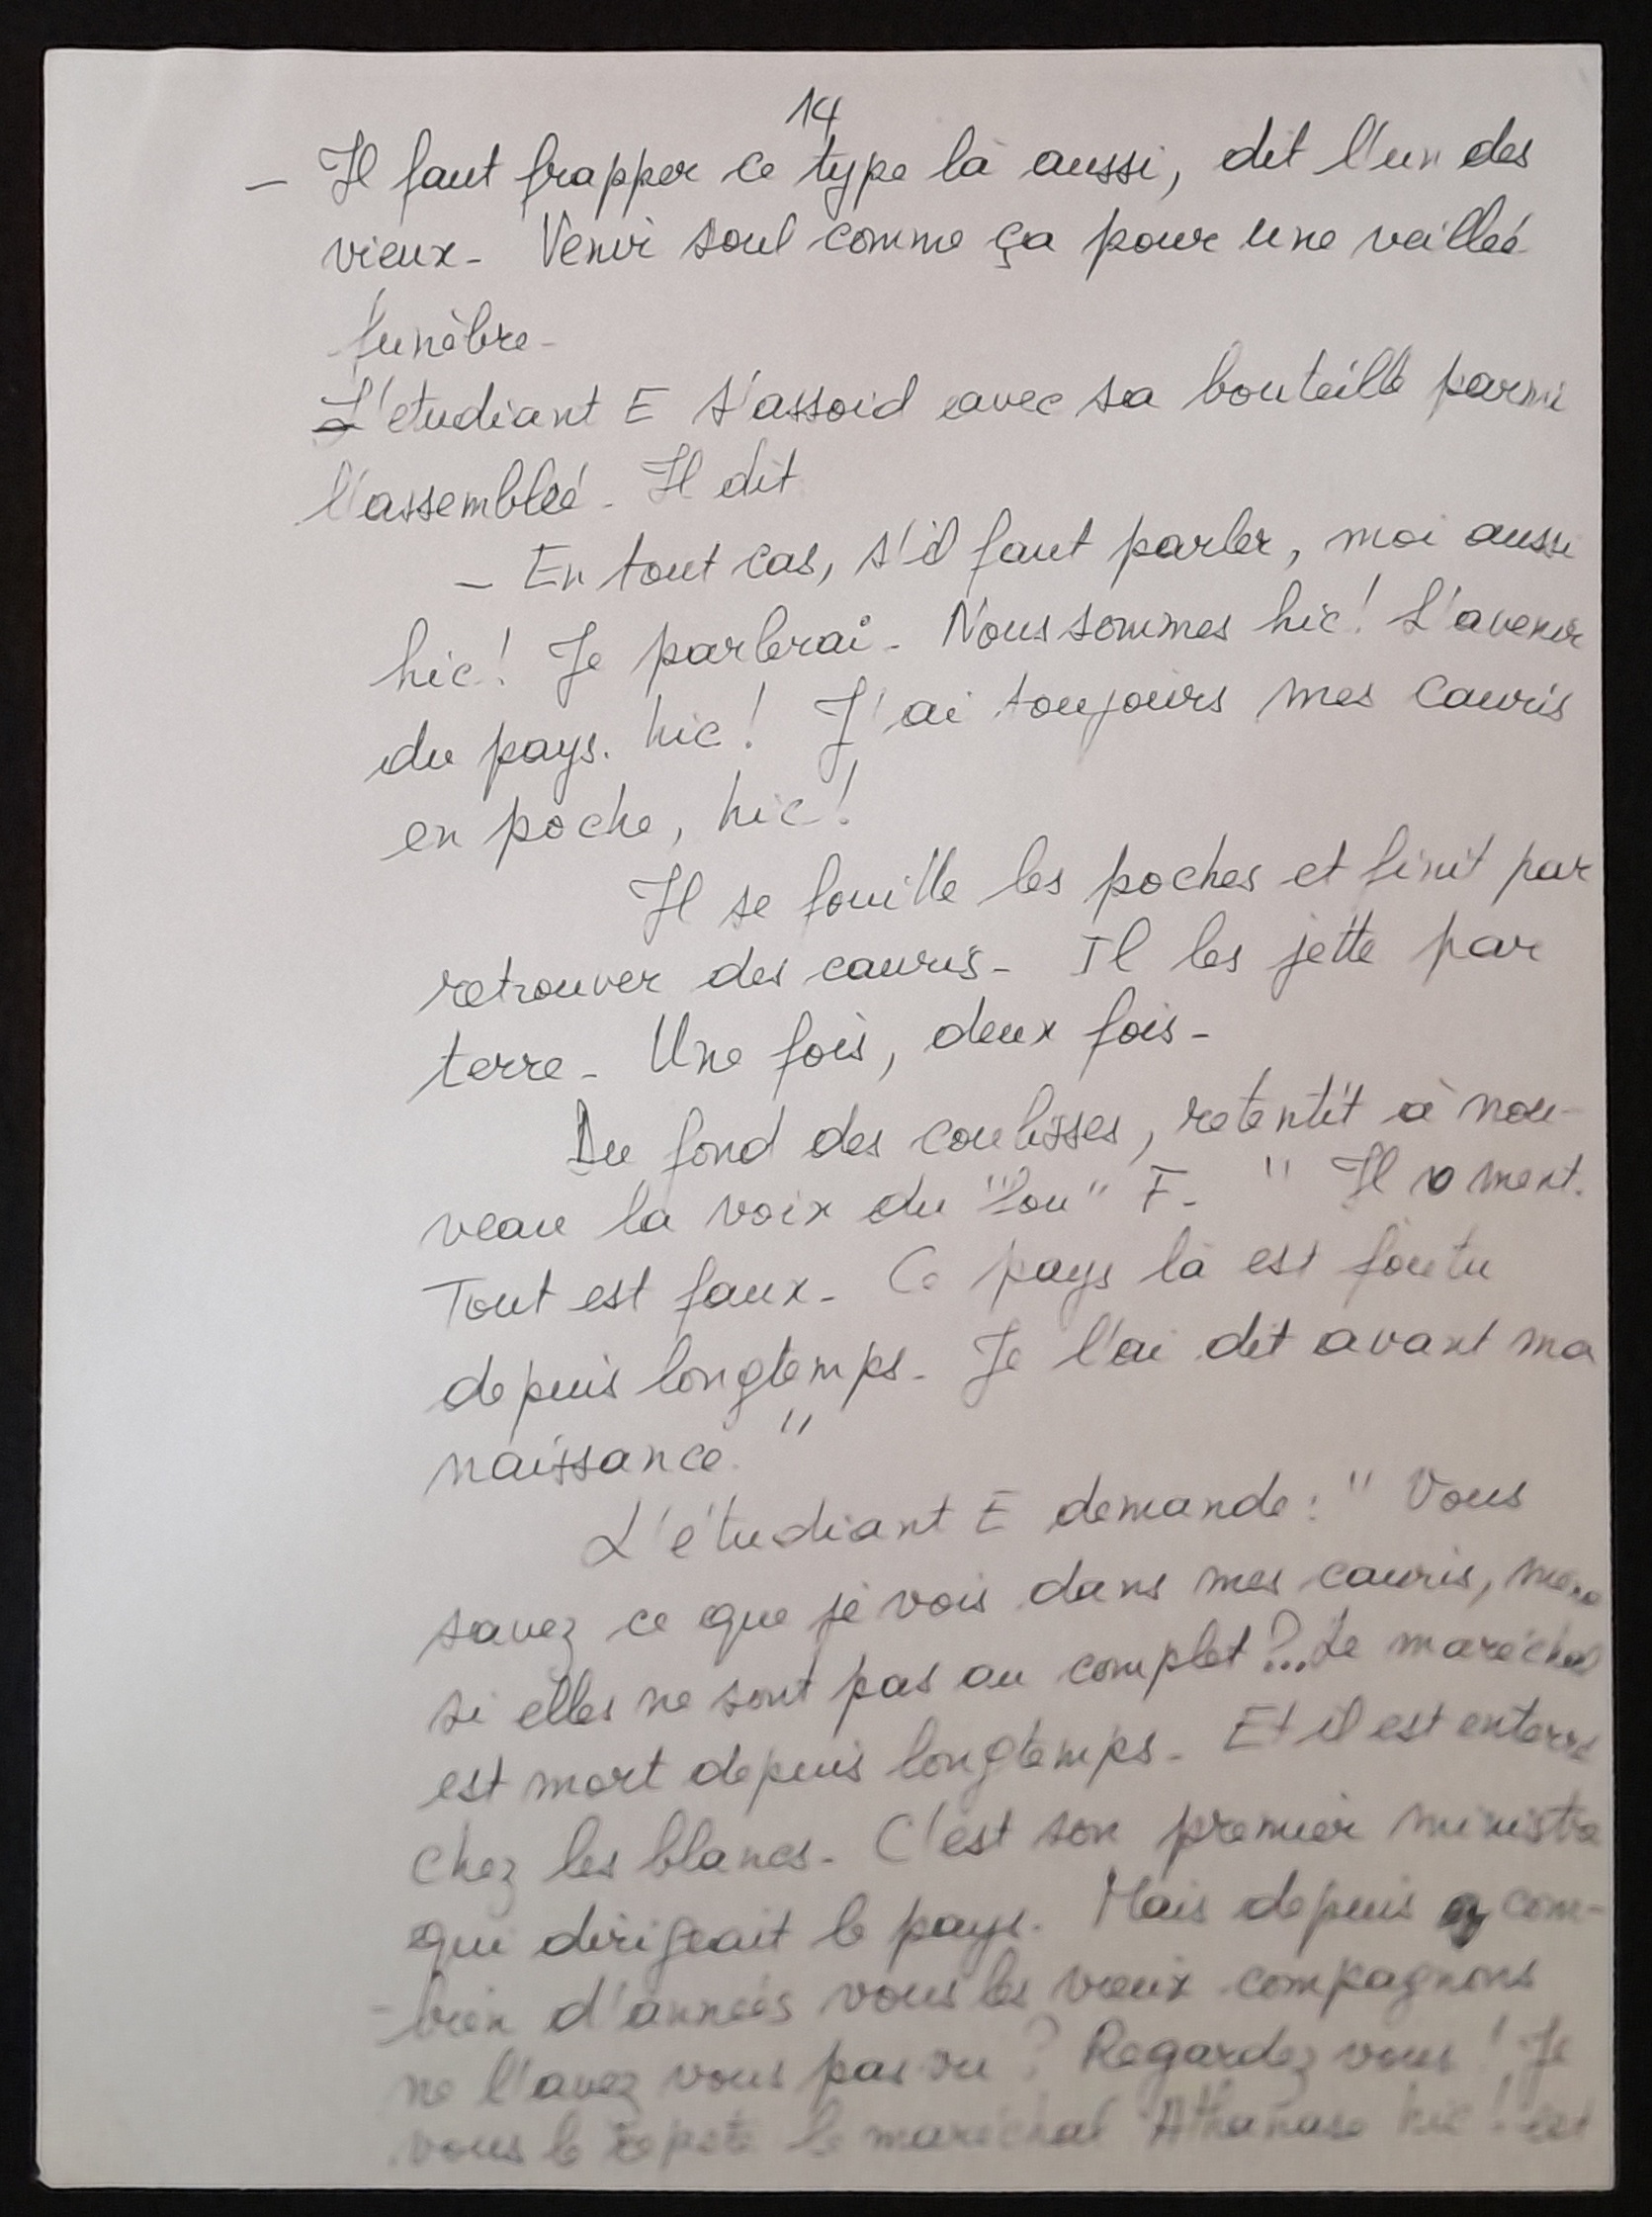 14
– Il faut frapper ce type là aussi, dit l'un des
vieux. Venir soul comme ça pour une veilleé
funèbre.
L'etudiant E s'assoid avec sa bouteille parmi
l'assembleé. Il dit
– En tout cas, s'il faut parler, moi aussi
hic! Je parlerai. Nous sommes hic! L'avenir
du pays. hic! J'ai toujours mes cauris
en poche, hic!
Il se fouille les poches et finit par
retrouver des cauris. Il les jette par
terre. Une fois, deux fois.
Du fond des coulisses, retentit à nou-
veau la voix du "fou" F. " Il ment.
Tout est faux. Ce pays là est foutu
depuis longtemps. Je l'ai dit avant ma
naissance. "
L'étudiant E demande : " Vous
savez ce que je vois dans mes cauris, meme
si elles ne sont pas au complet ?... Le maréchal
est mort depuis longtemps. Et il est enterré
chez les blancs. C'est son premier ministre
qui dirigeait le pays. Mais depuis com-
-bien d'anneés vous les vieux compagnons
ne l'avez vous pas vu ? Regardez vous ! Je
vous le repete le maréchal Athanase hic ! est